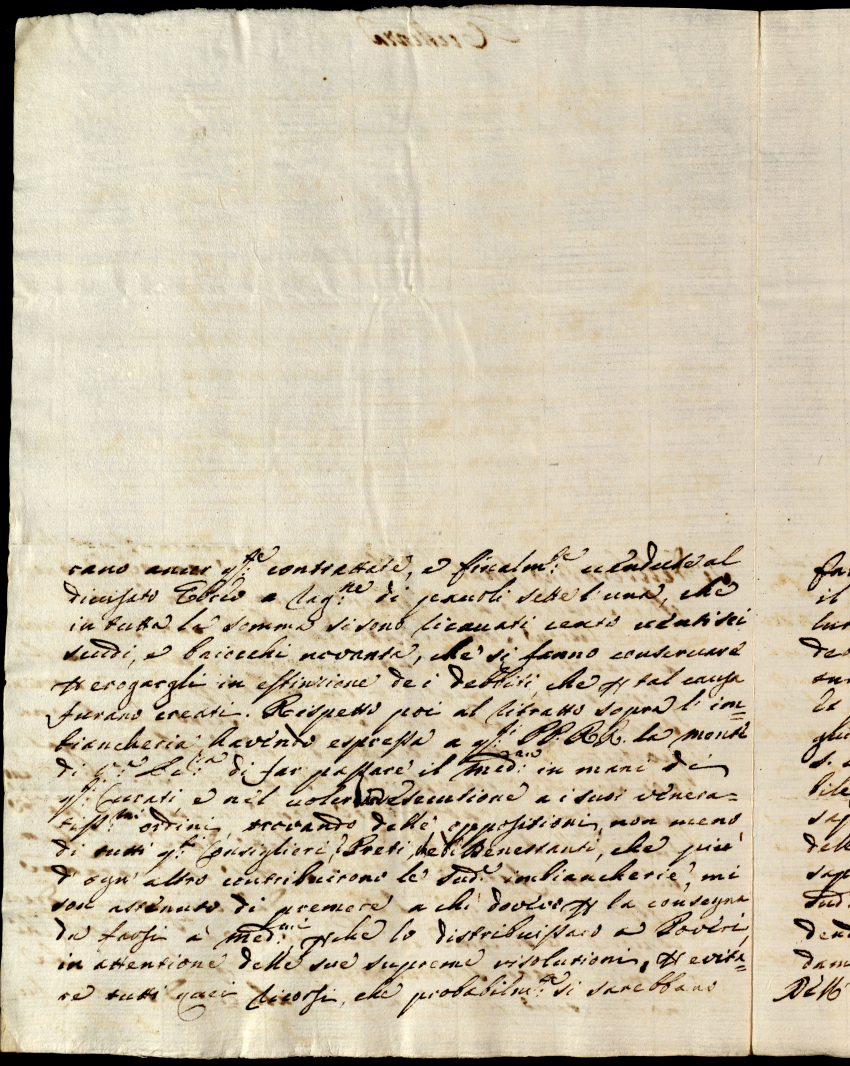 rano ancor q.ste contrattate, e finalm.te vendute al
divisato Ebreo a rag.ne di pavoli sette l'una, che
in tutta la somma si sono ricavati cento ventisei
scudi, e baiocchi novanta, che si fanno conservare
p erogargli in estinzione dei debbiti, che p tal causa
furano creati. Rispetto poi al ritratto sopra l'im=
biancheria, havendo espressa a q.sti PP. RR. la mente
di far passare il med.mo in mani di
q.sti Curati e nel voler esecutione a i suoi venera=
tiss.mi ordini, trovando delle oppositioni, non meno
di tutti q.sti Consiglieri, Preti, e Benestanti, che più
d'ogn'altro contribuirono le sud.e imbiancherie, mi
son astenuto di premere a chi dovevo p la consegna
da farsi a med.mi, pche lo distribuissaro a Poveri,
in attentione delle sue supreme risolutioni, p evita=
re tutti quei ricorsi, che probabilm.te si sarebbano